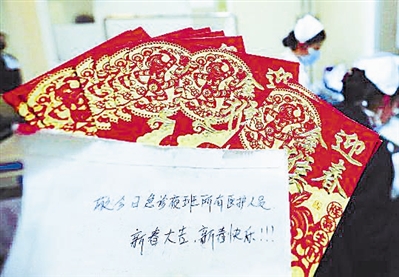 祝今日急诊夜班所有医护人员
新春大吉、新春快乐!!!
迎春